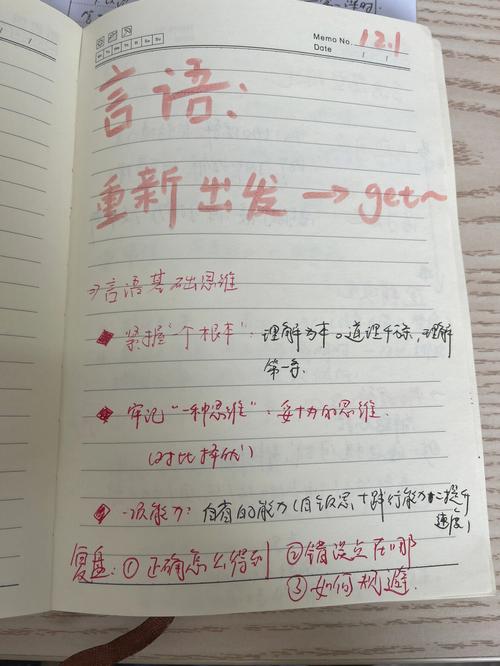 Memo No. 12.1
Date / /
Mo Tu We Th Fr Sa Su
言语:
重新出发 → get~
言语基础思维
紧握"一个根本": 理解为本。道理千条,理解
第一条
牢记"一种思维": 妥协的思维.
(对比择优)
一项能力: 自省的能力(自我反思+践行能力=提升
速度)
复盘: ①正确怎么得到 ②错误点在哪
③如何规避.